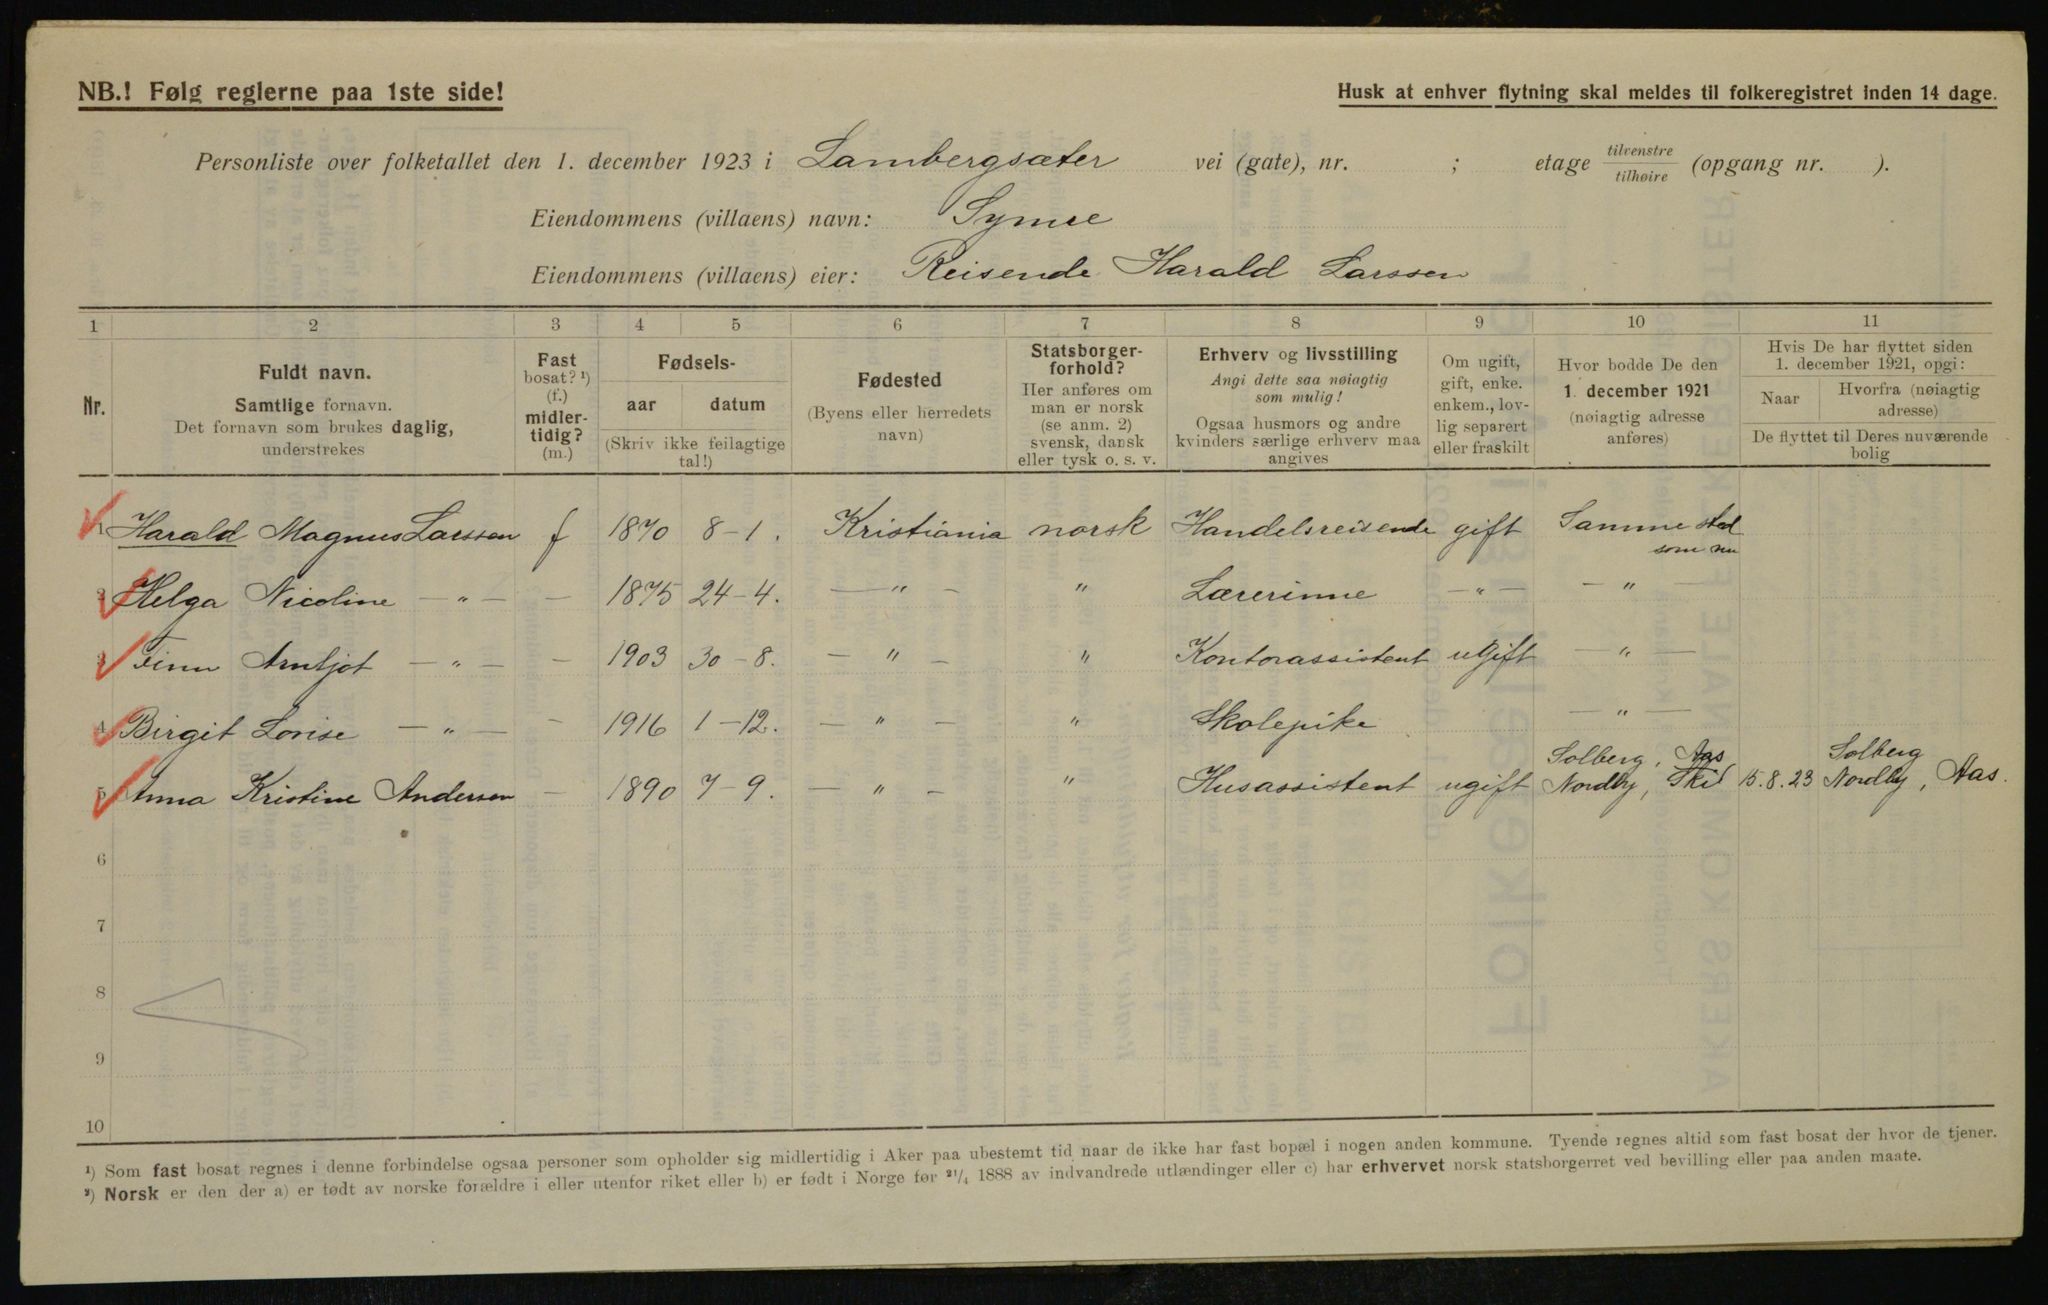 NB.! Følg reglerne paa 1ste side!
Husk at enhver flytning skal meldes til folkeregistret inden 14 dage.
Personliste over folketallet den 1. december 1923 i Lambergsæter vei (gate), nr. ; etage tilvenstre/tilhøire (opgang nr. ).
Eiendommens (villaens) navn: Symre
Eiendommens (villaens) eier: Reisende Harald Larssen
1 2 3 4 5 6 7 8 9 10 11
Nr.
Fuldt navn.
Samtlige fornavn.
Det fornavn som brukes daglig,
understrekes
Fast
bosat? ¹)
(f.)
midler-
tidig?
(m.)
Fødsels-
aar datum
(Skriv ikke feilagtige
tal!)
Fødested
(Byens eller herredets
navn)
Statsborger-
forhold?
Her anføres om
man er norsk
(se anm. 2)
svensk, dansk
eller tysk o. s. v.
Erhverv og livsstilling
Angi dette saa nøiagtig
som mulig!
Ogsaa husmors og andre
kvinders særlige erhverv maa
angives
Om ugift,
gift, enke.
enkem., lov-
lig separert
eller fraskilt
Hvor bodde De den
1. december 1921
(nøiagtig adresse
anføres)
Hvis De har flyttet siden
1. december 1921, opgi:
Naar
Hvorfra (nøiagtig
adresse)
De flyttet til Deres nuværende
bolig
1 Harald Magnus Larssen f 1870 8-1. Kristiania norsk Handelsreisende gift Samme sted
som nu
2 Helga Nicoline — „ — — 1875 24-4. — „ — „ Lærerinne — „ — — „ —
3 Finn Arntjot — „ — — 1903 30-8. — „ — „ Kontorassistent ugift — „ —
4 Birgit Lovise — „ — — 1916 1-12. — „ — „ Skolepike — „ —
Solberg, Aas Solberg
5 Anna Kristine Andersen — 1890 7-9. — „ — „ Husassistent ugift Nordby, Ski 15.8.23 Nordby, Aas.
6
7
8
9
10
¹) Som fast bosat regnes i denne forbindelse ogsaa personer som opholder sig midlertidig i Aker paa ubestemt tid naar de ikke har fast bopæl i nogen anden kommune. Tyende regnes altid som fast bosat der hvor de tjener.
²) Norsk er den der a) er født av norske forældre i eller utenfor riket eller b) er født i Norge før ²¹/₄ 1888 av indvandrede utlændinger eller c) har erhvervet norsk statsborgerret ved bevilling eller paa anden maate.